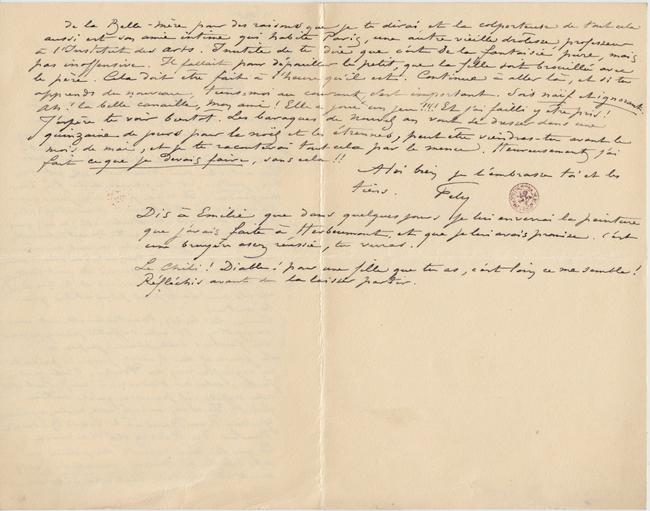 de la Belle-mère pour des raisons que je te dirai et la colporteuse de tout cela
aussi est son amie intime qui habite Paris, une autre vieille drolesse, professeur
à l'Institut des Arts. Inutile de te dire que c'est de la fantaisie, pure, mais
pas inoffensive. Il fallait pour dépouiller le petit, que la fille soit brouillée avec
le père. Cela doit être fait à l'heure qu'il est. Continue à aller là, et si tu
apprends du nouveau, tiens-moi au courant, c'est important. Sois naïf et ignorant.
Ah! la belle canaille, mon ami! Elle a joué un jeu!!! Et j'ai failli y être pris!
J'espère te voir bientot. Les baraques de Nouvel an vont se dresser dans une
quinzaine de jours pour le noël et les étrennes, peut être viendras-tu avant le
mois de mai, et je te raconterai tout cela par le menu. Heureusement j'ai
fait ce que je devais faire, sans cela!!
A toi bien je t'embrasse toi et les
tiens. Fély
Dis à Emilie que dans quelques jours je lui enverrai la peinture
que j'avais faite à Herbeumont, et que je lui avais promise. C'est
une bruyère assez réussie, tu verras.
Le Chili! Diable! pour une fille que tu as, c'est loin ce me semble!
Réfléchis avant de la laisser partir.